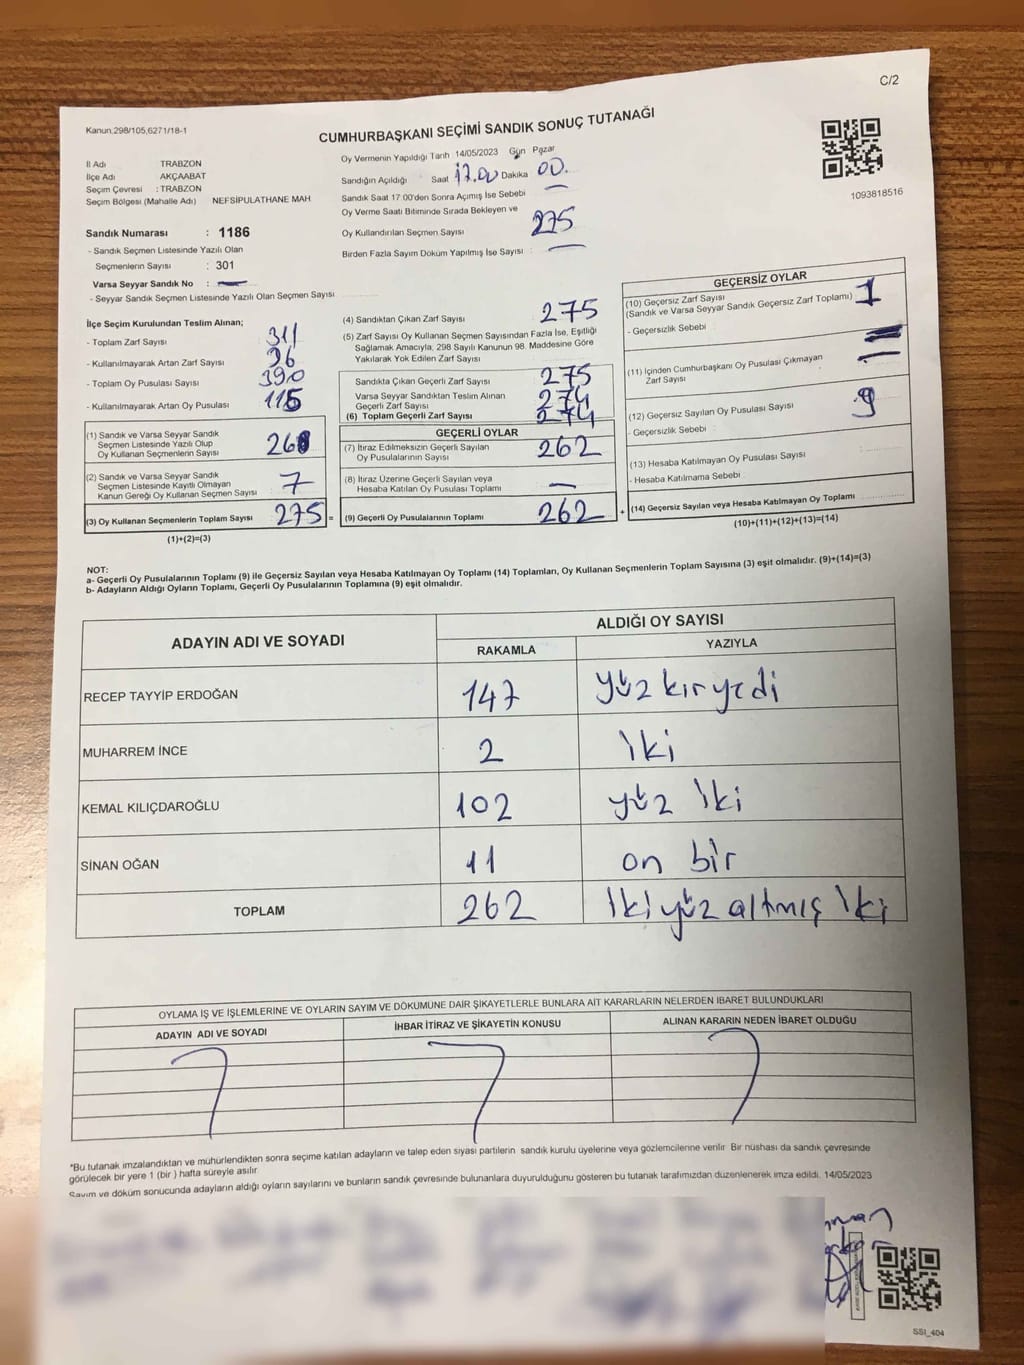 C/2
Kanun,298/105,6271/18-1
CUMHURBAŞKANI SEÇİMİ SANDIK SONUÇ TUTANAĞI
İl Adı TRABZON
İlçe Adı AKÇAABAT
Seçim Çevresi : TRABZON
Seçim Bölgesi (Mahalle Adı) NEFSİPULATHANE MAH
Sandık Numarası : 1186
- Sandık Seçmen Listesinde Yazılı Olan
Seçmenlerin Sayısı : 301
Varsa Seyyar Sandık No : —
- Seyyar Sandık Seçmen Listesinde Yazılı Olan Seçmen Sayısı
Oy Vermenin Yapıldığı Tarih 14/05/2023 Gün Pazar
Sandığın Açıldığı Saat 17.00 Dakika 00.
Sandık Saat 17:00'den Sonra Açımış İse Sebebi —
Oy Verme Saati Bitiminde Sırada Bekleyen ve
Oy Kullandırılan Seçmen Sayısı 275
Birden Fazla Sayım Döküm Yapılmış İse Sayısı : —
1093818516
İlçe Seçim Kurulundan Teslim Alınan;
- Toplam Zarf Sayısı 311
- Kullanılmayarak Artan Zarf Sayısı 36
- Toplam Oy Pusulası Sayısı 390
- Kullanılmayarak Artan Oy Pusulası 115
(1) Sandık ve Varsa Seyyar Sandık
Seçmen Listesinde Yazılı Olup
Oy Kullanan Seçmenlerin Sayısı 268
(2) Sandık ve Varsa Seyyar Sandık
Seçmen Listesinde Kayıtlı Olmayan
Kanun Gereği Oy Kullanan Seçmen Sayısı 7
(3) Oy Kullanan Seçmenlerin Toplam Sayısı 275 =
(1)+(2)=(3)
(4) Sandıktan Çıkan Zarf Sayısı 275
(5) Zarf Sayısı Oy Kullanan Seçmen Sayısından Fazla İse, Eşitliği
Sağlamak Amacıyla, 298 Sayılı Kanunun 98. Maddesine Göre
Yakılarak Yok Edilen Zarf Sayısı
Sandıkta Çıkan Geçerli Zarf Sayısı 275
Varsa Seyyar Sandıktan Teslim Alınan
Geçerli Zarf Sayısı 274
(6) Toplam Geçerli Zarf Sayısı 274
GEÇERLİ OYLAR
(7) İtiraz Edilmeksizin Geçerli Sayılan
Oy Pusulalarının Sayısı 262
(8) İtiraz Üzerine Geçerli Sayılan veya
Hesaba Katılan Oy Pusulası Toplamı —
(9) Geçerli Oy Pusulalarının Toplamı 262 +
GEÇERSİZ OYLAR
(10) Geçersiz Zarf Sayısı
(Sandık ve Varsa Seyyar Sandık Geçersiz Zarf Toplamı) 1
- Geçersizlik Sebebi
(11) İçinden Cumhurbaşkanı Oy Pusulası Çıkmayan
Zarf Sayısı —
(12) Geçersiz Sayılan Oy Pusulası Sayısı 9
- Geçersizlik Sebebi
(13) Hesaba Katılmayan Oy Pusulası Sayısı
- Hesaba Katılmama Sebebi
(14) Geçersiz Sayılan veya Hesaba Katılmayan Oy Toplamı
(10)+(11)+(12)+(13)=(14)
NOT:
a- Geçerli Oy Pusulalarının Toplamı (9) ile Geçersiz Sayılan veya Hesaba Katılmayan Oy Toplamı (14) Toplamları, Oy Kullanan Seçmenlerin Toplam Sayısına (3) eşit olmalıdır. (9)+(14)=(3)
b- Adayların Aldığı Oyların Toplamı, Geçerli Oy Pusulalarının Toplamına (9) eşit olmalıdır.
ADAYIN ADI VE SOYADI ALDIĞI OY SAYISI
RAKAMLA YAZIYLA
RECEP TAYYİP ERDOĞAN 147 yüz kır yedi
MUHARREM İNCE 2 iki
KEMAL KILIÇDAROĞLU 102 yüz iki
SİNAN OĞAN 11 on bir
TOPLAM 262 iki yüz altmış iki
OYLAMA İŞ VE İŞLEMLERİNE VE OYLARIN SAYIM VE DÖKÜMÜNE DAİR ŞİKAYETLERLE BUNLARA AİT KARARLARIN NELERDEN İBARET BULUNDUKLARI
ADAYIN ADI VE SOYADI İHBAR İTİRAZ VE ŞİKAYETİN KONUSU ALINAN KARARIN NEDEN İBARET OLDUĞU
*Bu tutanak imzalandıktan ve mühürlendikten sonra seçime katılan adayların ve talep eden siyasi partilerin sandık kurulu üyelerine veya gözlemcilerine verilir. Bir nüshası da sandık çevresinde
görülecek bir yere 1 (bir ) hafta süreyle asılır.
Sayım ve döküm sonucunda adayların aldığı oyların sayılarını ve bunların sandık çevresinde bulunanlara duyurulduğunu gösteren bu tutanak tarafımızdan düzenlenerek imza edildi. 14/05/2023
SSI_404